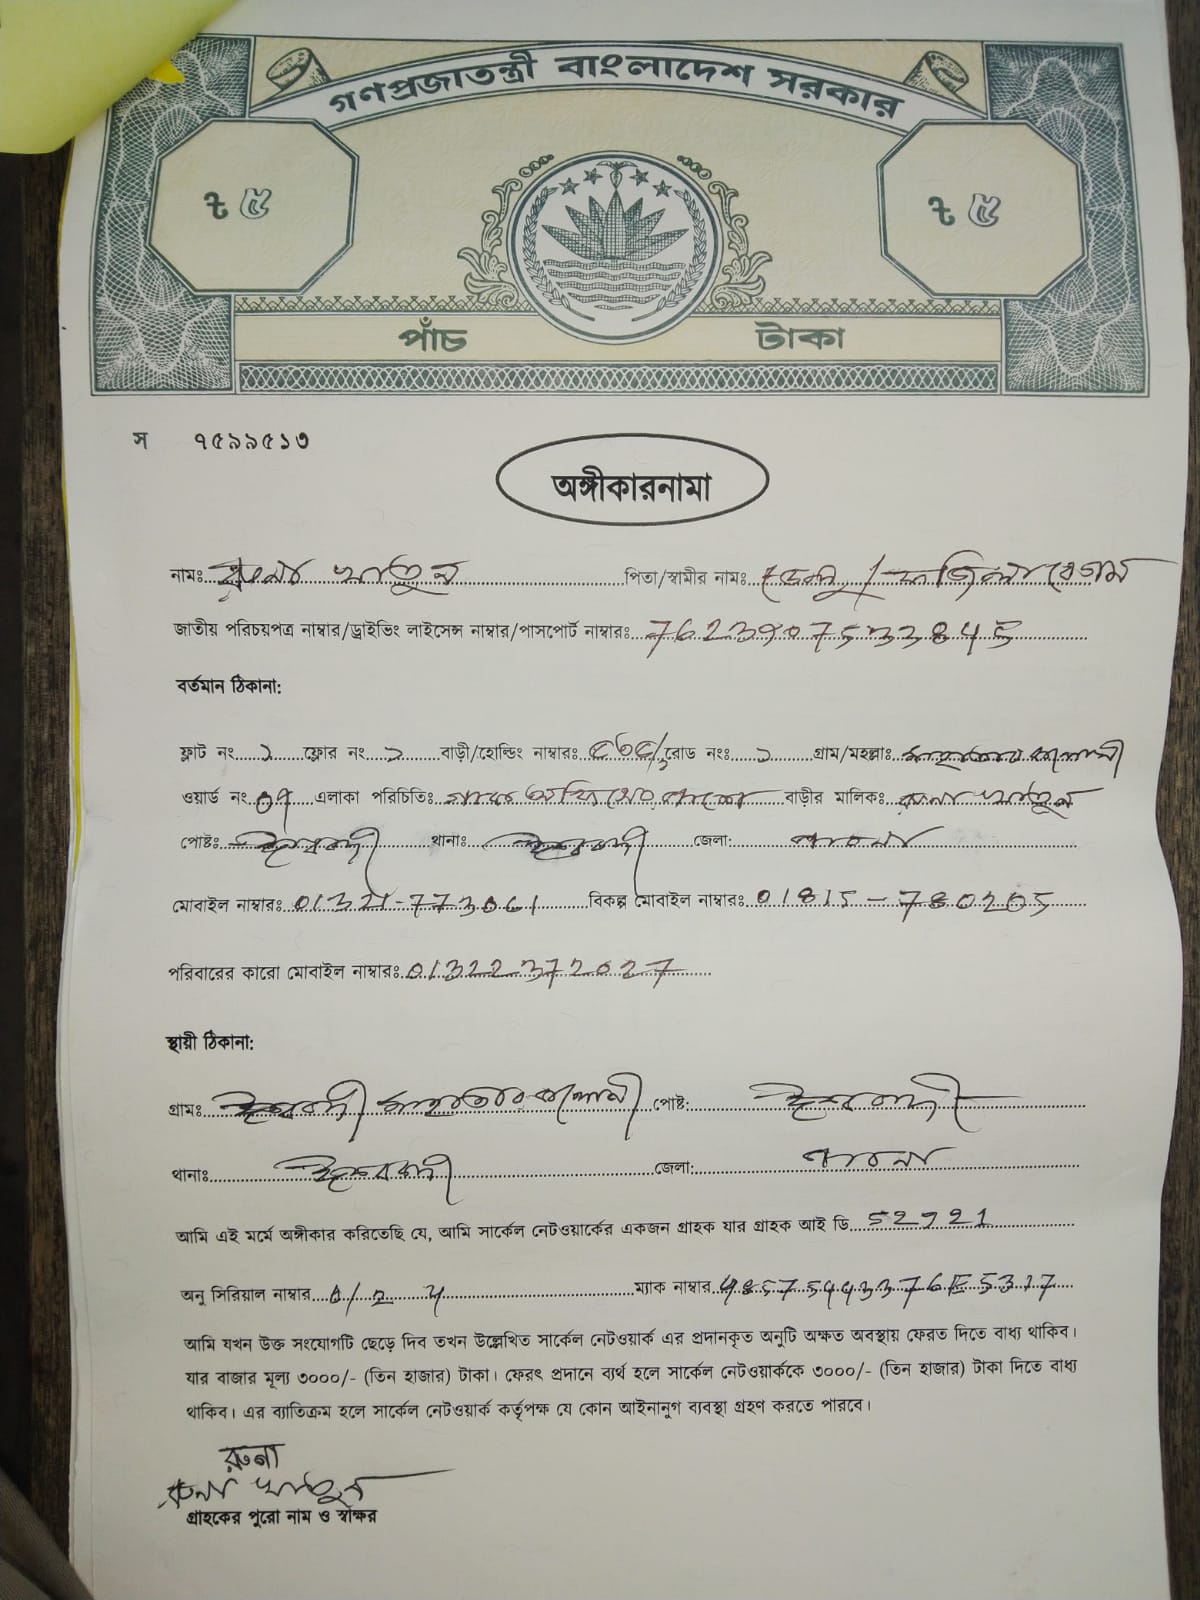 গণপ্রজাতন্ত্রী বাংলাদেশ সরকার
৳ ৫ ৳ ৫
পাঁচ টাকা
স ৭৫৯৯৫১৩
অঙ্গীকারনামা
নামঃ রুনা খাতুন পিতা/স্বামীর নামঃ / ফজিলা বেগম
জাতীয় পরিচয়পত্র নাম্বার/ড্রাইভিং লাইসেন্স নাম্বার/পাসপোর্ট নাম্বারঃ
বর্তমান ঠিকানা:
ফ্লাট নং ১ ফ্লোর নং ১ বাড়ী/হোল্ডিং নাম্বারঃ রোড নংঃ ১ গ্রাম/মহল্লাঃ
ওয়ার্ড নং ০৭ এলাকা পরিচিতিঃ বাড়ীর মালিকঃ রুনা খাতুন
পোষ্টঃ ঈশ্বরদী থানাঃ ঈশ্বরদী জেলা: পাবনা
মোবাইল নাম্বারঃ বিকল্প মোবাইল নাম্বারঃ 01815-780205
পরিবারের কারো মোবাইল নাম্বারঃ 01322372027
স্থায়ী ঠিকানা:
গ্রামঃ ঈশ্বরদী পোষ্ট: ঈশ্বরদী
থানাঃ ঈশ্বরদী জেলা: পাবনা
আমি এই মর্মে অঙ্গীকার করিতেছি যে, আমি সার্কেল নেটওয়ার্কের একজন গ্রাহক যার গ্রাহক আই ডি 52921
অনু সিরিয়াল নাম্বার ম্যাক নাম্বার
আমি যখন উক্ত সংযোগটি ছেড়ে দিব তখন উল্লেখিত সার্কেল নেটওয়ার্ক এর প্রদানকৃত অনুটি অক্ষত অবস্থায় ফেরত দিতে বাধ্য থাকিব।
যার বাজার মূল্য ৩০০০/- (তিন হাজার) টাকা। ফেরৎ প্রদানে ব্যর্থ হলে সার্কেল নেটওয়ার্ককে ৩০০০/- (তিন হাজার) টাকা দিতে বাধ্য
থাকিব। এর ব্যাতিক্রম হলে সার্কেল নেটওয়ার্ক কর্তৃপক্ষ যে কোন আইনানুগ ব্যবস্থা গ্রহণ করতে পারবে।
রুনা
রুনা খাতুন
গ্রাহকের পুরো নাম ও স্বাক্ষর